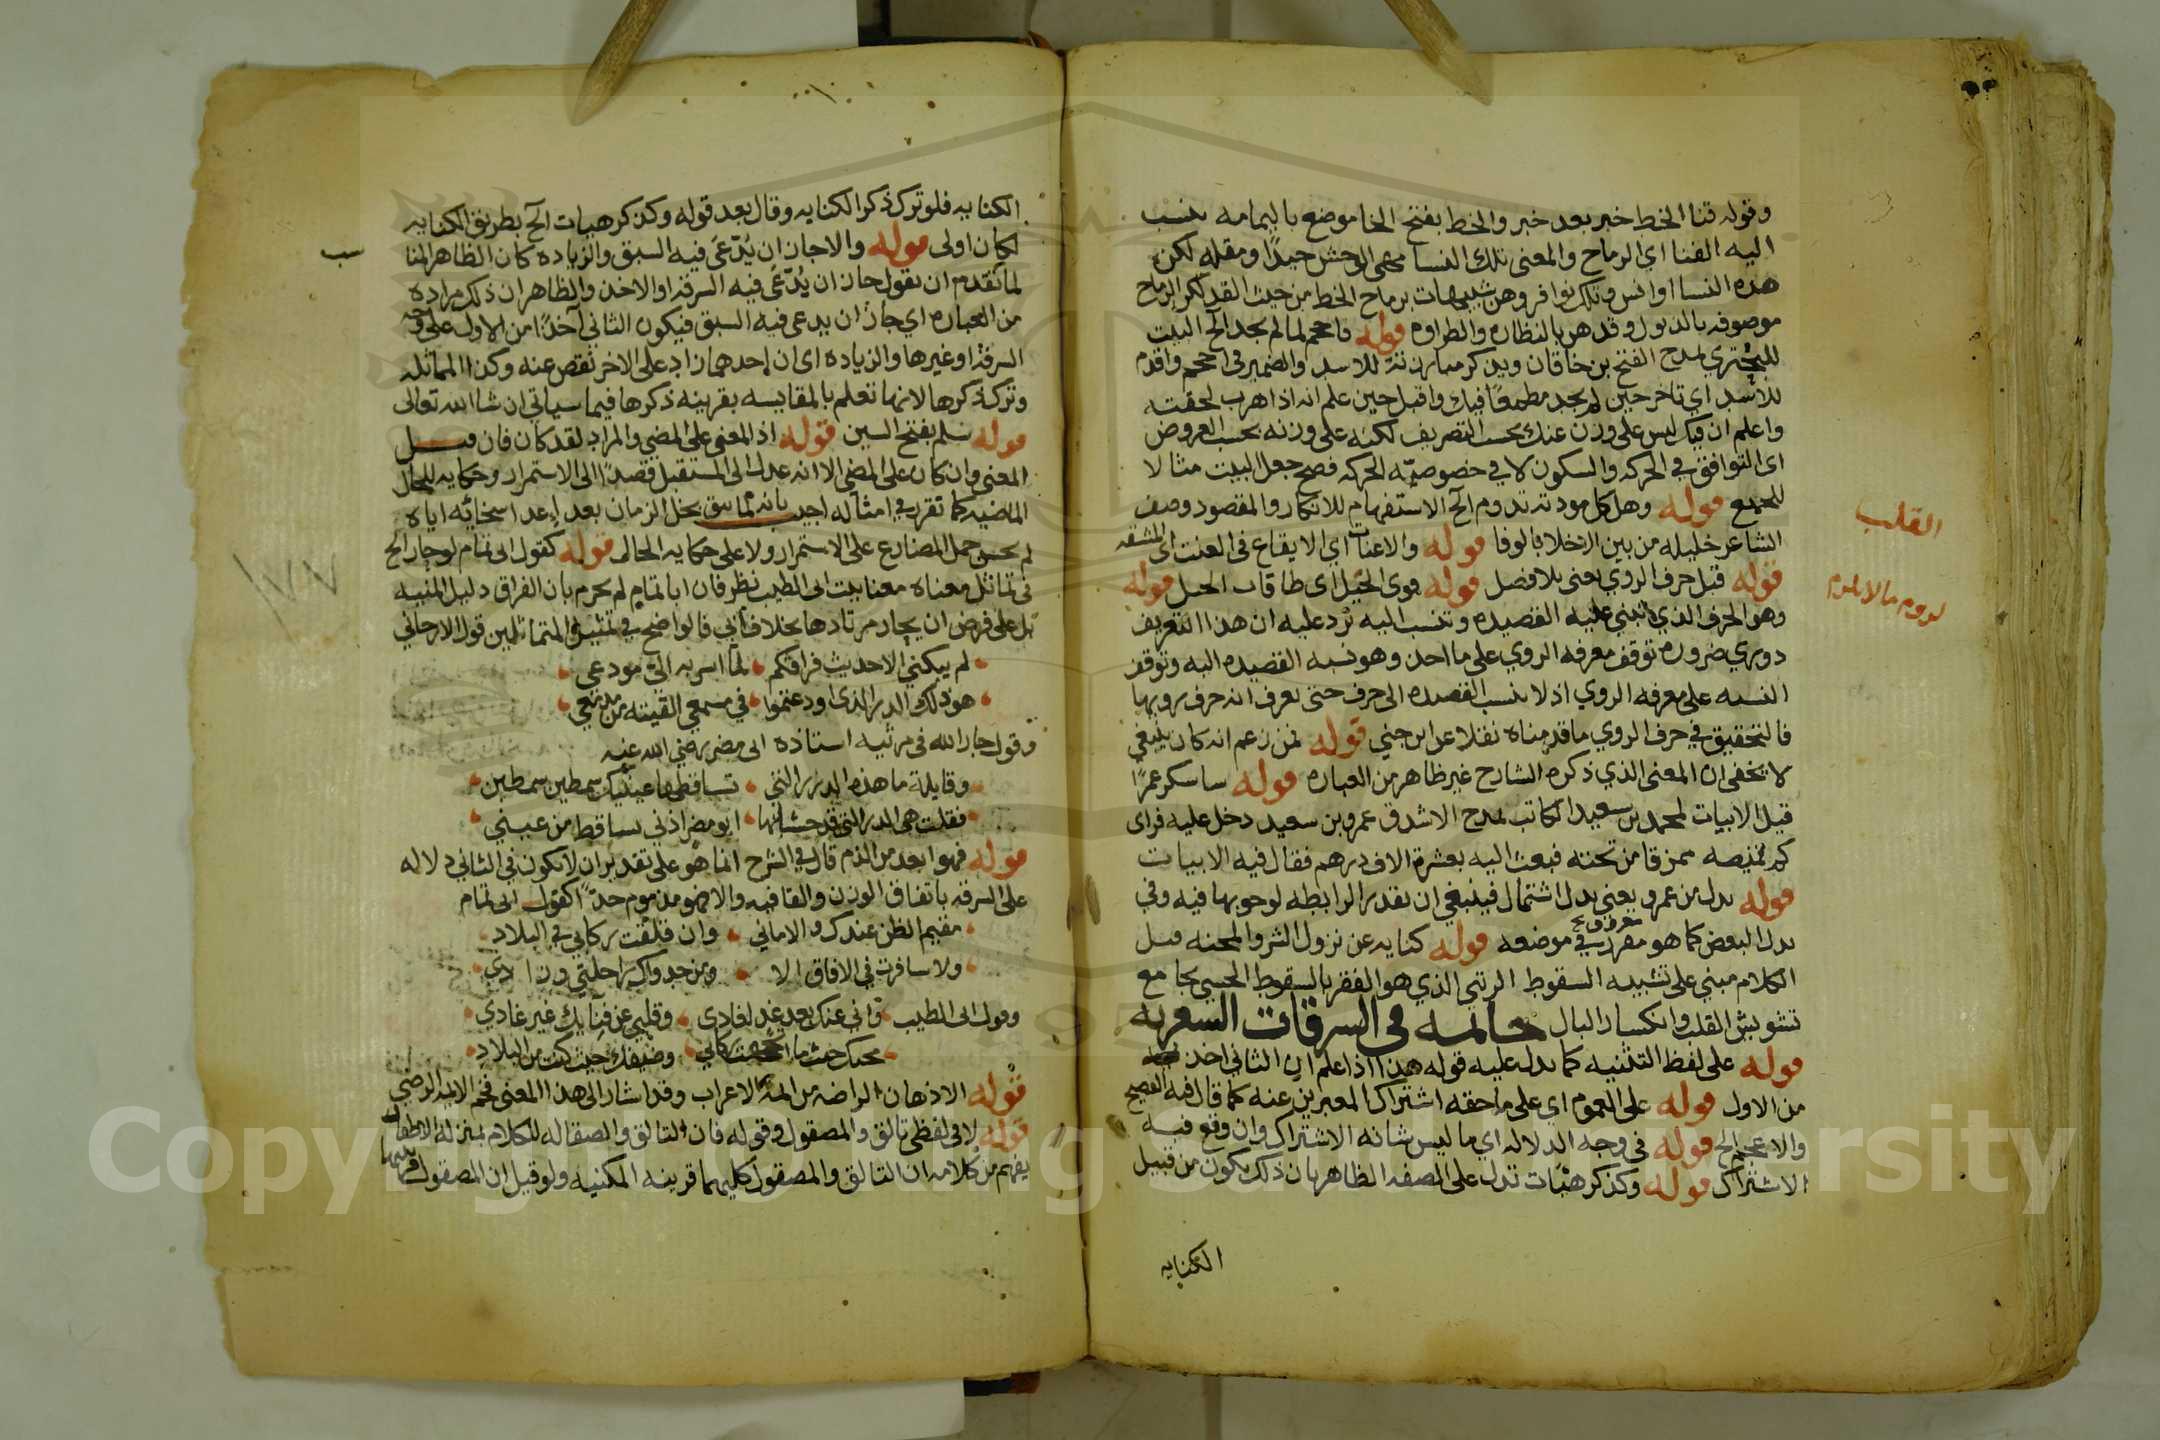 وقوله قنا الخط خبر بعد خبر والخط بفتح الخا موضع باليمامه ينسب
اليه القنا اي الرماح والمعنى تلك النسا مهى الوحش جيدًا ومقله لكن
هذه النسا اوانس وتلك نوافر وهن شبيهات برماح الخط من حيث القد لكن الرماح
موصوفه بالذبول وقدهن بالنظاره والطراوه قوله فاحجم لما لم يجد الخ البيت
للبحتري يمدح الفتح بن خاقان ويذكر مبارزته للاسد والضمير في احجم واقدم
للاسد اي تاخر حين لم يجد مطمعًا فيك واقبل حين علم انه اذا هرب لحقته
واعلم ان فيك ليس على وزن عنك بحسب التصريف لكنه على وزنه بحسب العروض
اى التوافق في الحركه والسكون لا في خصوصيّه الحركه فصح جعل البيت مثالا
للجميع قوله وهل كل مودته تدوم الخ الاستفهام للانكار والمقصود وصف
الشاعر خليله من بين الاخلا بالوفا قوله والاعنات اي الايقاع في العنت اى المشقه
قوله قبل حرف الروي يعنى بلا فصل قوله قوى الحبل اى طاقات الحبل قوله
وهو الحرف الذي تبنى عليه القصيده وتنسب اليه يرد عليه ان هذا التعريف
دوري ضروره توقف معرفه الروي على ما اخذ وهو نسبه القصيده اليه وتوقف
النسبه على معرفه الروي اذ لا ينسب القصيده الى حرف حتى يعرف انه حرف رويها
فالتحقيق في حرف الروي ما قدمناه نقلا عن ابن جني قوله فمن زعم انه كان ينبغي
لا يخفى ان المعنى الذي ذكره الشارح غير ظاهر من العباره قوله ساشكر عمرًا
قيل الابيات لمحمد بن سعيد الكاتب يمدح الاشدق عمرو بن سعيد دخل عليه فراى
كم قميصه ممزقا من تحته فبعث اليه بعشرة الاف درهم فقال فيه الابيات
قوله بدل من عمرو يعني بدل اشتمال فينبغي ان يقدر الرابطه لوجوبها فيه وفي
بدل البعض كما هو مقرر في موضعه قوله كنايه عن نزول الشر والمحنه قيل
الكلام مبني على تشبيه السقوط الرتبي الذي هو الفقر بالسقوط الحسي بجامع
تشويش القلب وانكسار البال خاتمه في السرقات الشعريه
قوله على لفظ التثنيه كما يدل عليه قوله هذا اذا علم ان الثاني اخذ
من الاول قوله على العموم اي على ما حققه اشتراك المعبرين عنه كما قال فيه الفصيح
والاعجم الخ قوله في وجه الدلاله اي ما ليس شانه الاشتراك وان وقع فيه
الاشتراك قوله وكذكر هيئات تدل على الصفه الظاهر ان ذلك يكون من قبيل
الكنايه
القلب
لزوم ما لا يلزم
الكنايه فلو ترك ذكر الكنايه وقال بعد قوله وكذكر هيات الخ بطريق الكنايه
لكان اولى قوله والا جاز ان يُدّعَى فيه السبق والزياده كان الظاهر المنا
لما تقدم ان يقول جاز ان يُدّعَى فيه السرقه او الاخذ والظاهر ان ذلك مراده
من العباره اي جاز ان يدعى فيه السبق فيكون الثاني آخذًا من الاول على وجه
السرقه او غيرها والزياده اى ان احدهما زاد على الاخر نقص عنه وكذا المماثله
وترك ذكرها لانها تعلم بالمقايسه بقرينه ذكرها فيما سياتي ان شا الله تعالى
قوله سَلم بفتح السين قوله اذ المعنى على المضي والمراد لقد كان فان قيل
المعنى وان كان على المضي الا انه عدل الى المستقبل قصدًا الى الاستمرار وحكايه للحال
الماضيه كما تقرر في امثاله اجيب بانه لما سبق بخل الزمان بعد اعدا سخائه اياه
لم يحسن حمل المضارع على الاستمرار ولا على حكايه الحال قوله كقول ابى تمام لو حار الخ
في تماثل معناه معنا بيت ابى الطيب نظر فان ابا تمام لم يجزم بان الفراق دليل المنيه
بل على فرض ان يحار مرتادها بخلاف ابي فالواضح في تمثيل المتماثلين قول الارجاني
لم يبكني الا حديث فراقكم لما اسر به الي مودعي
هو ذلك الدر الذى اودعتموا في مسمعي القيته من مدمعي
وقول جار الله في مرثيه استاذه ابى مضر رضي الله عنه
وقايلة ما هذه الدرر التي تساقطها عينيك سمطين سمطين
فقلت هي الدر التي قد حشا بها ابو مضر اذني تساقط من عيني
قوله فهو ابعد من الذم قال في الشرح انما هو على تقدير ان لا يكون في الثاني دلاله
على السرقه باتفاق الوزن والقافيه والا فهو مذموم جدًا كقول ابى تمام
مقيم الظن عندك والاماني وان قلقت ركابي في البلاد
ولا سافرت في الافاق الا ومن جدواك راحلتي وزادي
وقول ابى الطيب واني عنك بعد غد لغادى وقلبي عن فنآيك غير غادي
محبك حيث ما اتجهت ركابي وضيفك حيث كنت من البلاد
قوله الاذهان الراضه من ائمة الاعراب وقد اشار الى هذا المعنى نجم الايمه الرضي
قوله لا في لفظي تالق والمصقول وقوله فان التالق والصقاله للكلام بمنزله الاظفار
يفهم من كلامه ان التالق والمصقول كليهما قرينه المكنيه ولو قيل ان المصقول